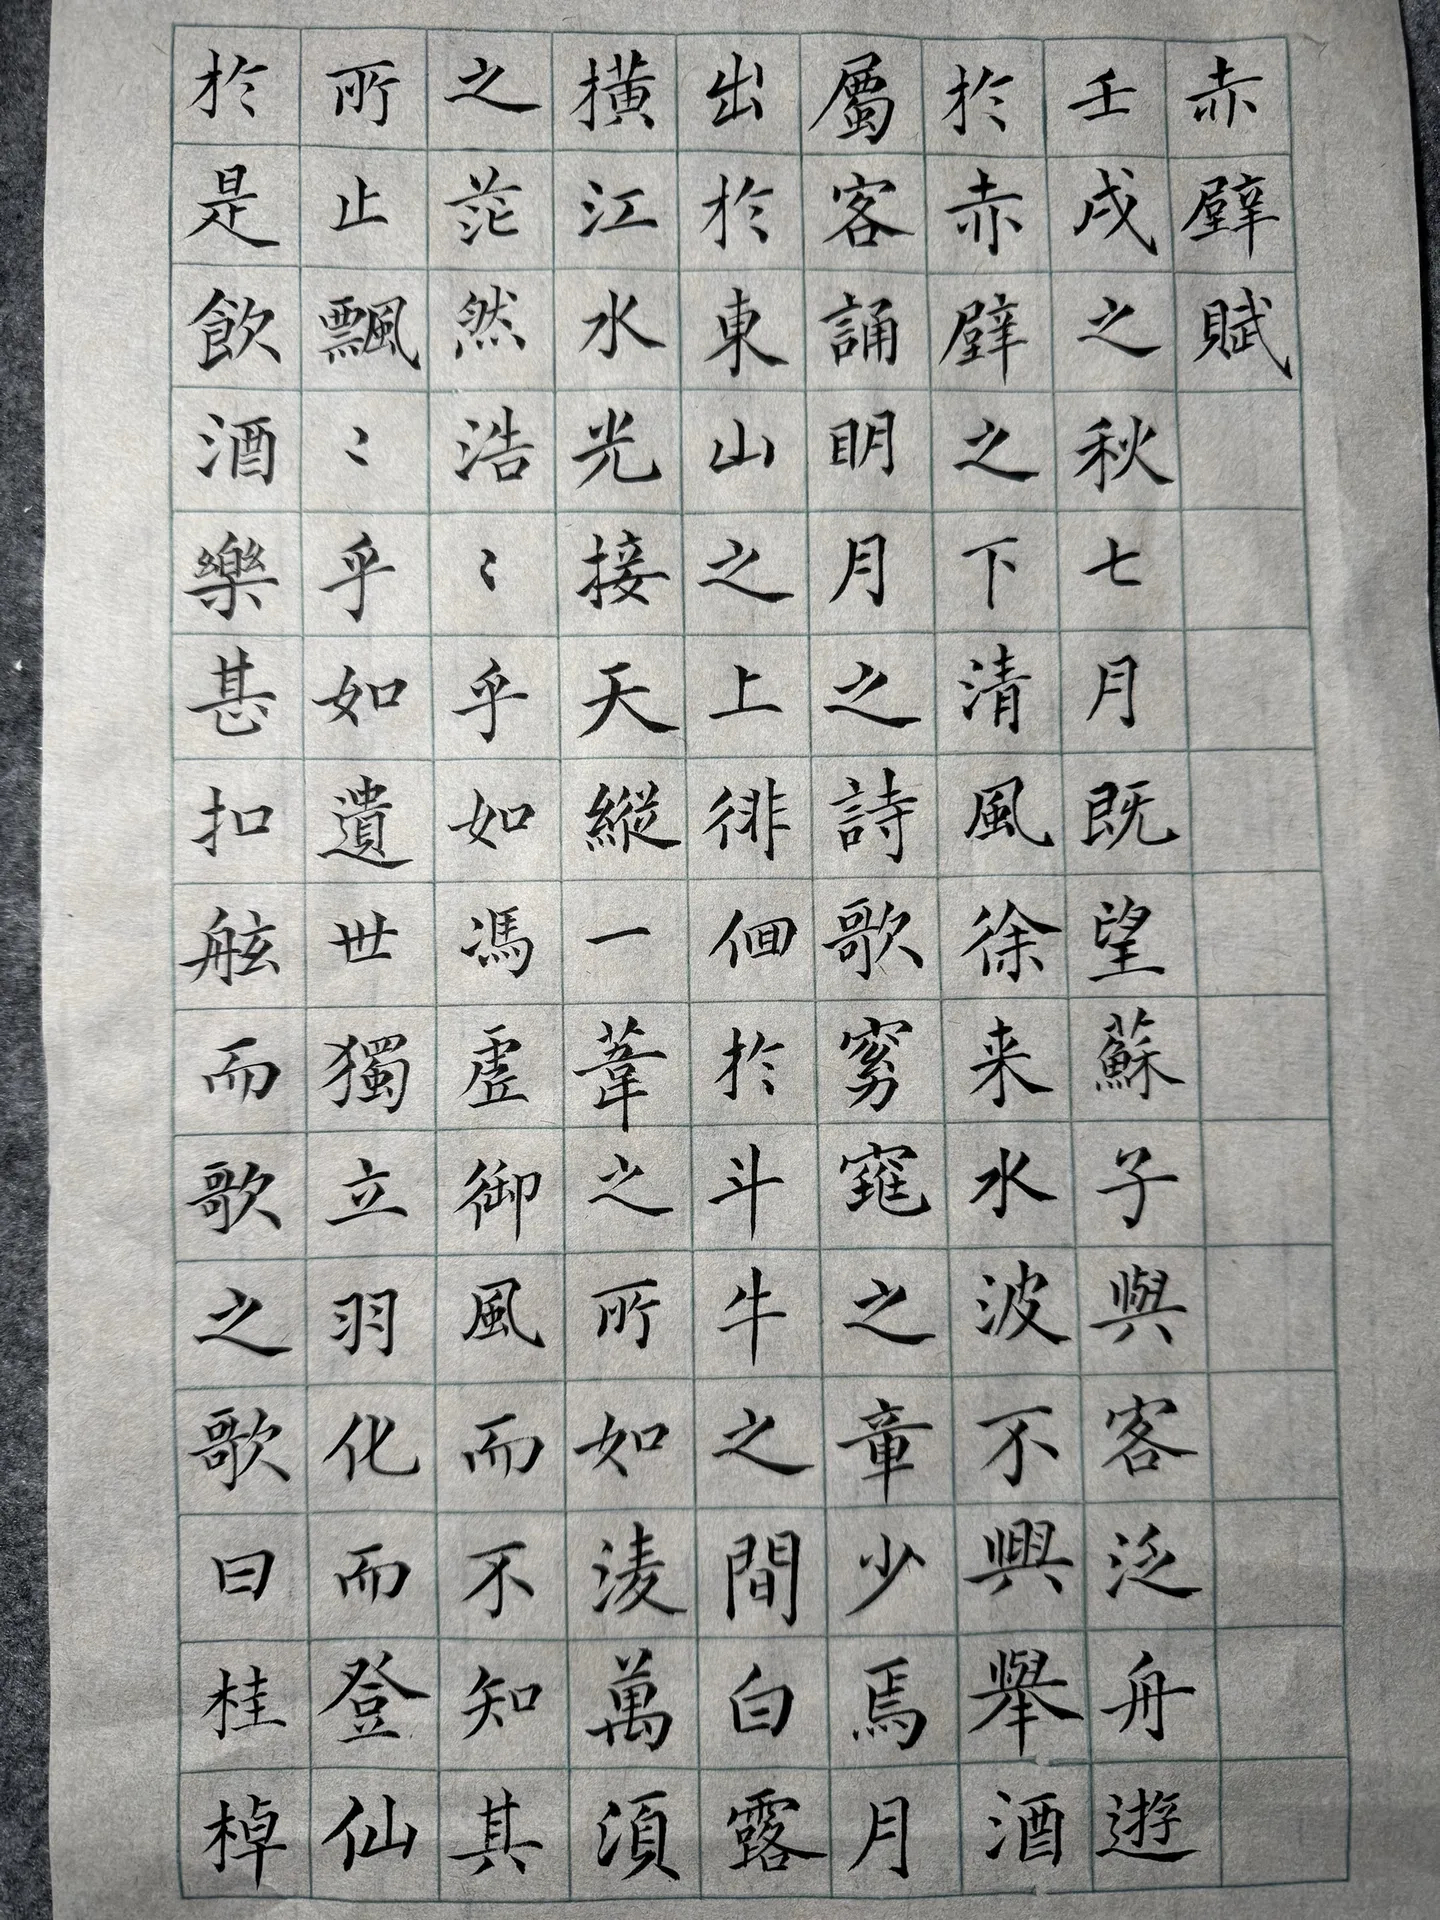 赤壁賦
壬戌之秋七月既望蘇子與客泛舟遊
於赤壁之下清風徐来水波不興舉酒
屬客誦明月之詩歌窈窕之章少焉月
出於東山之上徘佪於斗牛之間白露
橫江水光接天縱一葦之所如淩萬頃
之茫然浩〻乎如馮虛御風而不知其
所止飄〻乎如遺世獨立羽化而登仙
於是飲酒樂甚扣舷而歌之歌曰桂棹